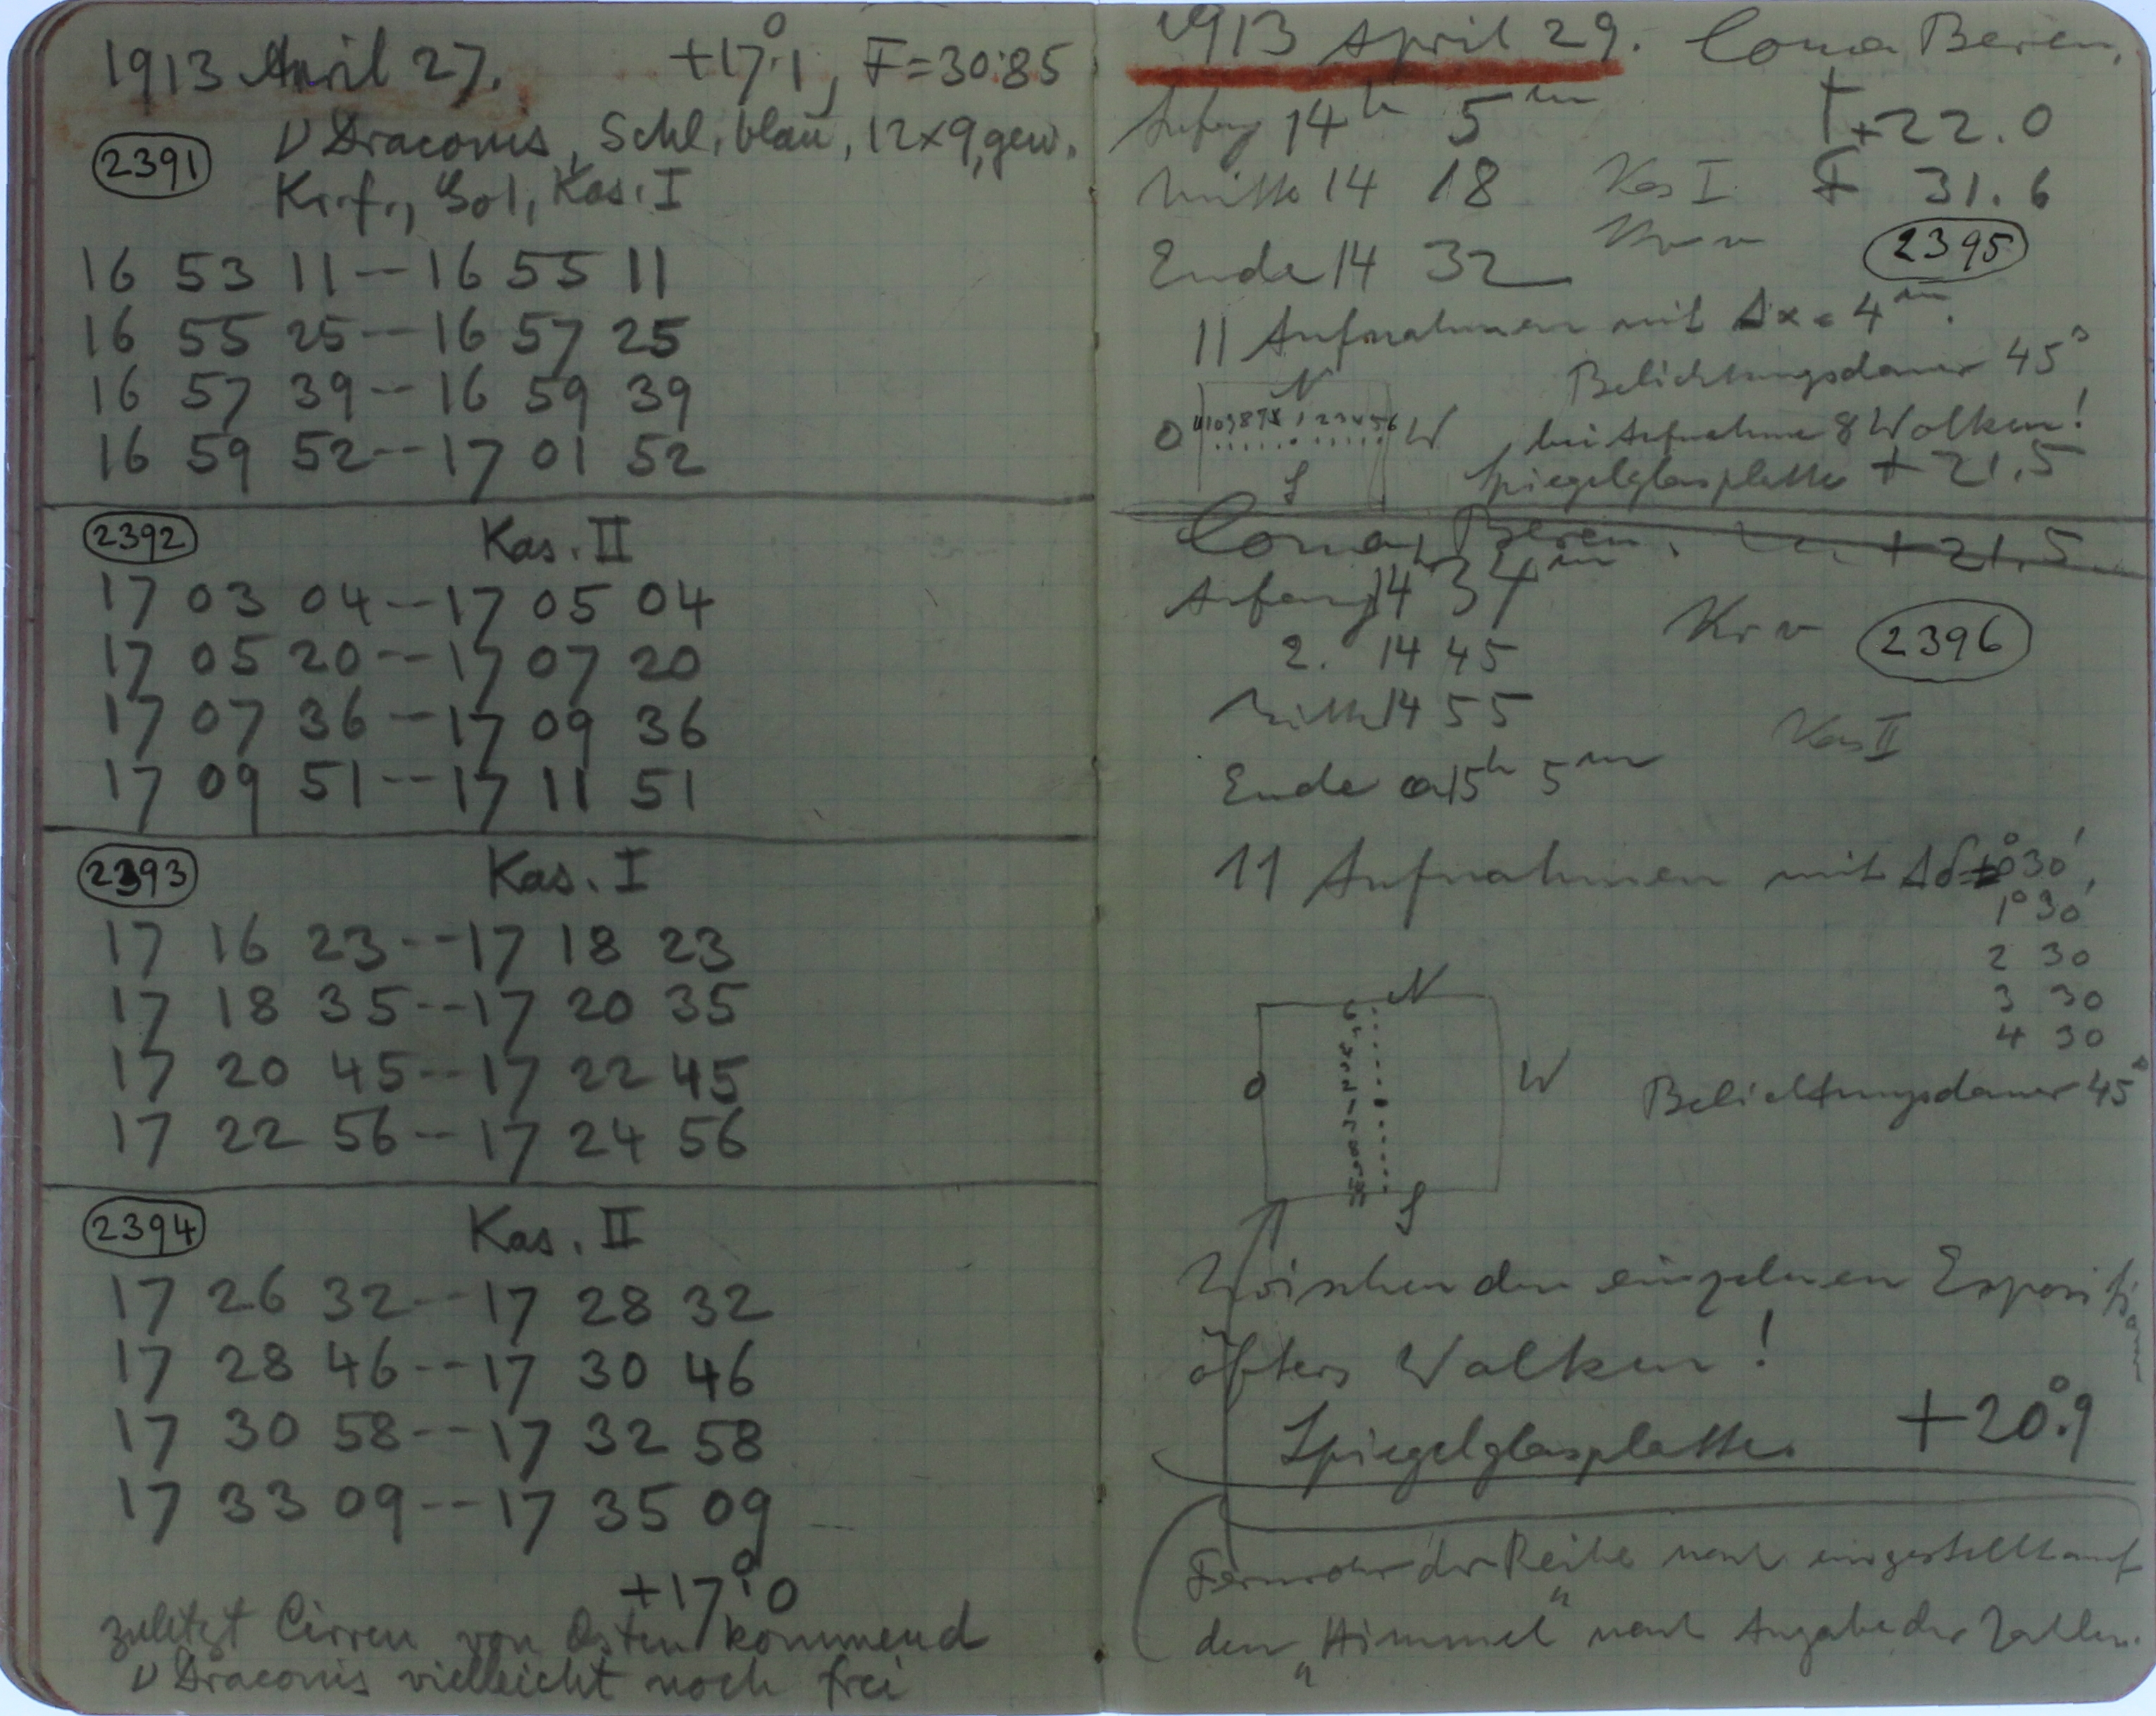 1913 April 27. +17°.1, F=30.85
2391 ν Draconis, Schl. blau, 12x9, gew.
Kr.f., Kas. I
16 53 11 -- 16 55 11
16 55 25 -- 16 57 25
16 57 39 -- 16 59 39
16 59 52 -- 17 01 52
2392 Kas. II
17 03 04 -- 17 05 04
17 05 20 -- 17 07 20
17 07 36 -- 17 09 36
17 09 51 -- 17 11 51
2393 Kas. I
17 16 23 -- 17 18 23
17 18 35 -- 17 20 35
17 20 45 -- 17 22 45
17 22 56 -- 17 24 56
2394 Kas. II
17 26 32 -- 17 28 32
17 28 46 -- 17 30 46
17 30 58 -- 17 32 58
17 33 09 -- 17 35 09
+17°.0
zuletzt Cirren von Osten kommend
ν Draconis vielleicht noch frei
1913 April 29. Coma Beren.
Anfang 14h 5m +22.0
Mitte 14 18 Kas I F 31.6
Ende 14 32 Kr v 2395
11 Aufnahmen mit Δα = 4m.
Belichtungsdauer 45s
N
O 11 10 9 8 7 1 2 3 4 5 6 W
bei Aufnahme 8 Wolken!
S Spiegelglasplatte +21.5
Coma Beren. +21.5
Anfang 14h 34m
Kr v 2396
2. 14 45
Mitte 14 55
Kas II
Ende ca 15h 5m
11 Aufnahmen mit Δδ=±0°30',
1°30'
2 30
3 30
4 30
N
O W
Belichtungsdauer 45s
S
Zwischen den einzelnen Expositionen
öfters Wolken!
Spiegelglasplatte. +20°.9
Fernrohr der Reihe nach eingestellt auf
den „Himmel" nach Angabe der Zahlen.